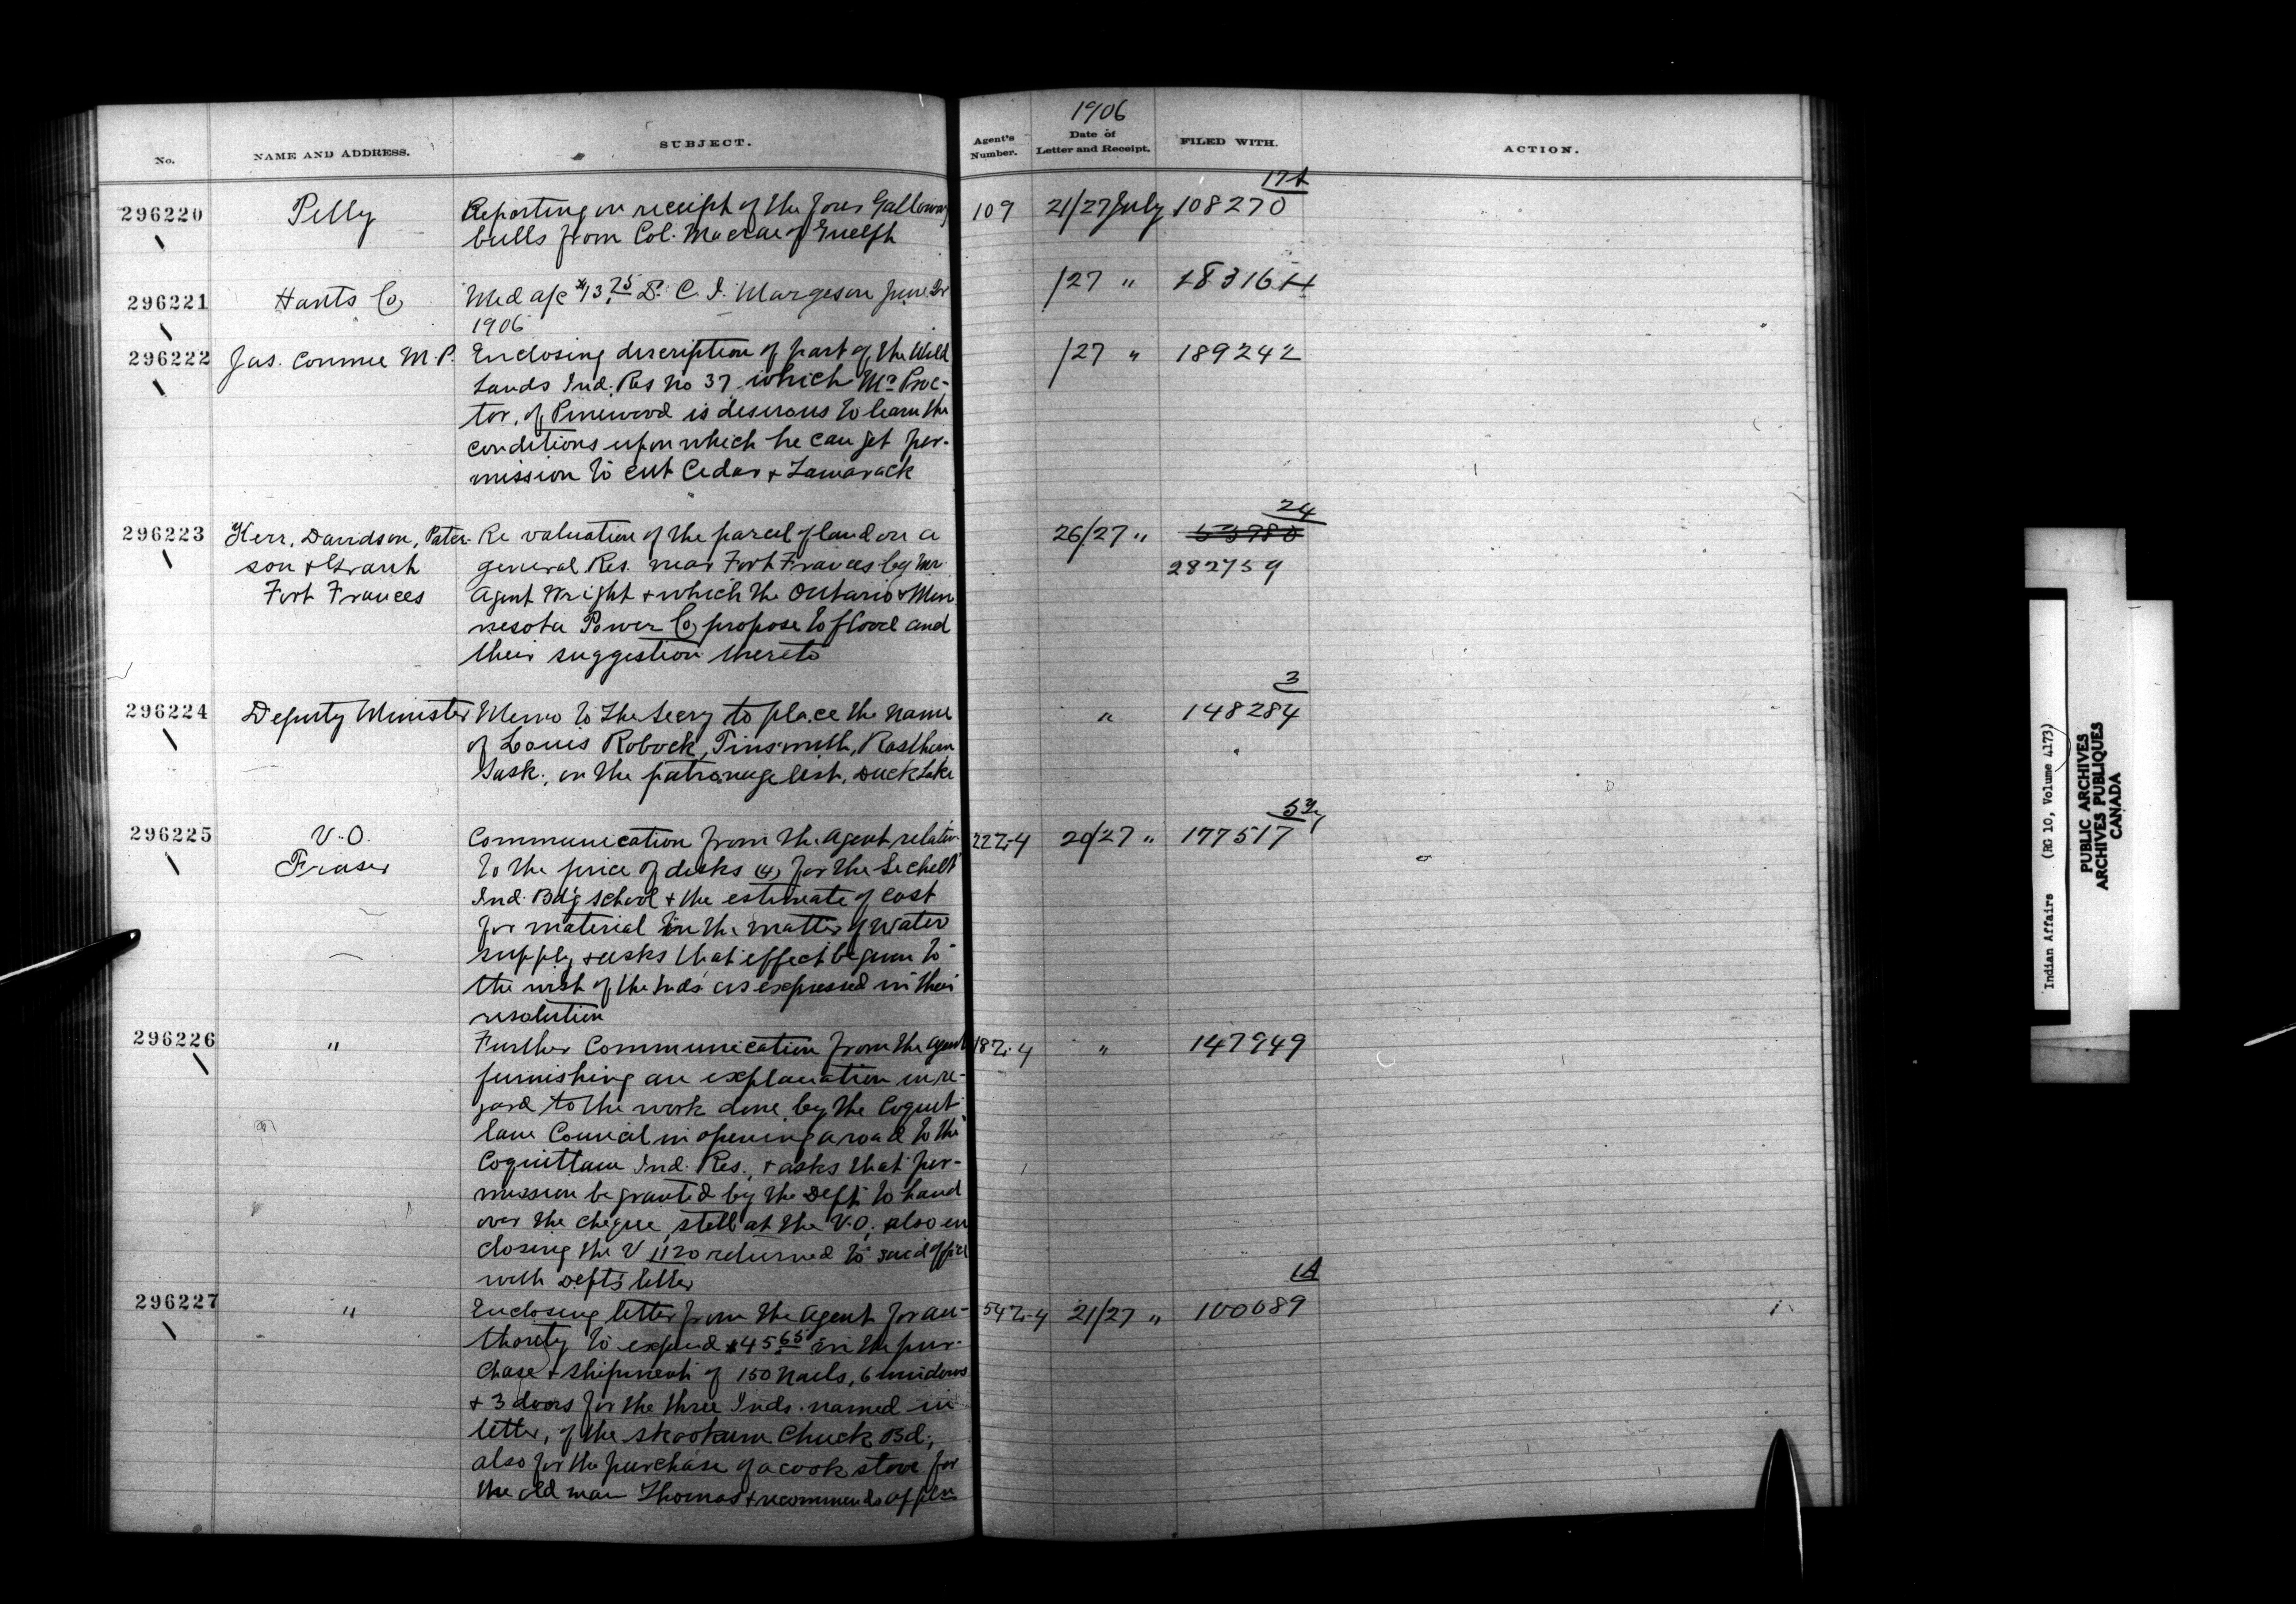 1906
No.
NAME AND ADDRESS.
SUBJECT.
Agent's Number.
Date of Letter and Receipt.
FILED WITH.
ACTION.
17A
296220 Pelly Reporting on receipt of the four Galloway 109 21/27 July 108270
bulls from Col. Macrae of Guelph
296221 Hants Co, Med a/c $13.75 Dr. C. I. Margeson June Qr /27 " 183164
1906
296222 Jas. Conmee M.P. Enclosing description of part of the Wild /27 " 189242
Lands Ind. Res no 37 which Mr Proc-
tor, of Pinewood is desirous to learn the
conditions upon which he can get per-
mission to cut Cedar & Tamarack
24
296223 Kerr, Davidson, Pater- Re valuation of the parcel of land on a 26/27 " 53980
son & Grant general Res. near Fort Frances by Mr 282759
Fort Frances Agent Wright & which the Ontario & Min
nesota Power Co, propose to flood and
their suggestion thereto
3
296224 Deputy Minister Memo to the Secry to place the name " 148284
of Louis Robock, Tinsmith, Rosthern
Sask., on the patronage list, Duck Lake
53
296225 V.O. Communication from the Agent relativ- 227-4 20/27 " 177517
Fraser to the price of desks (4) for the Sechelt
Ind. Bd'g School & the estimate of cost
for material in the matter of water
supply, & asks that effect be given to
the wish of the Inds as expressed in their
resolution
296226 " Further Communication from the Agent 187-4 " 147949
furnishing an explanation in re-
gard to the work done by the Coquit-
lam Council in opening a road to the
Coquitlam Ind. Res., & asks that per-
mission be granted by the Dept to hand
over the cheque, still at the V.O., also en
closing the V 1120 returned to said office
with Dept's letter
1A
296227 " Enclosing letter from the Agent for au- 547-4 21/27 " 100089
thority to expend $45.65 in the pur-
chase & shipment of 150 nails, 6 windows
& 3 doors for the three Inds. named in
letter, of the Skookum Chuck Bd.,
also for the purchase of a cook stove for
the old man Thomas & recommends
Indian Affairs (RG 10, Volume 4173)
PUBLIC ARCHIVES
ARCHIVES PUBLIQUES
CANADA